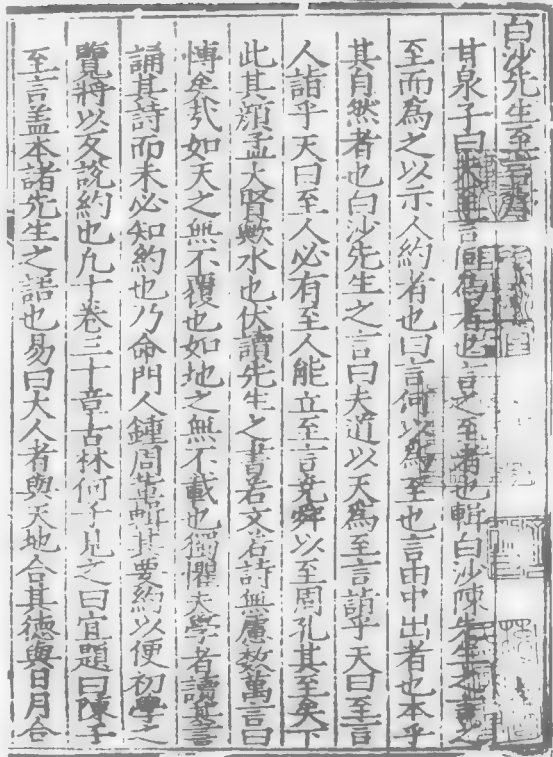 白沙先生至言序
甘泉子曰夫至言何為者也言之至者也輯白沙陳先生之言之
至而為之以示人約者也曰言何以為至也言由中出者也本乎
其自然者也白沙先生之言曰夫道以天為至言詣乎天曰至言
人詣乎天曰至人必有至人能立至言堯舜以至周孔其至矣下
此其顏孟大賢歟水也伏讀先生之書若文若詩無慮數萬言曰
博矣哉如天之無不覆也如地之無不載也獨懼夫學者讀其言
誦其詩而未必知約也乃命門人鍾周輯其要約以便初學之
覽將以反說約也凡十卷三十章古林何子見之曰宜題曰陳子
至言盖本諸先生之語也易曰大人者與天地合其德與日月合